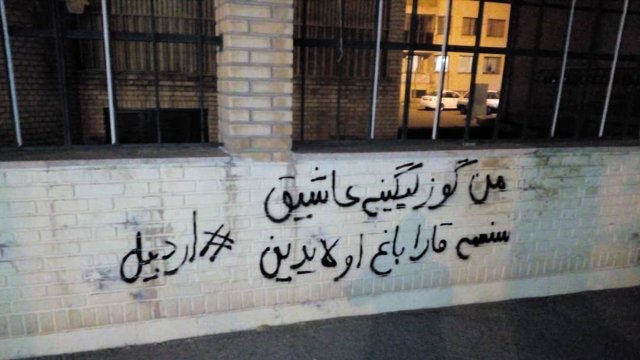 من گوزلیگینے عاشیق
سنسه قاراباغ اولایدین #اردبیل